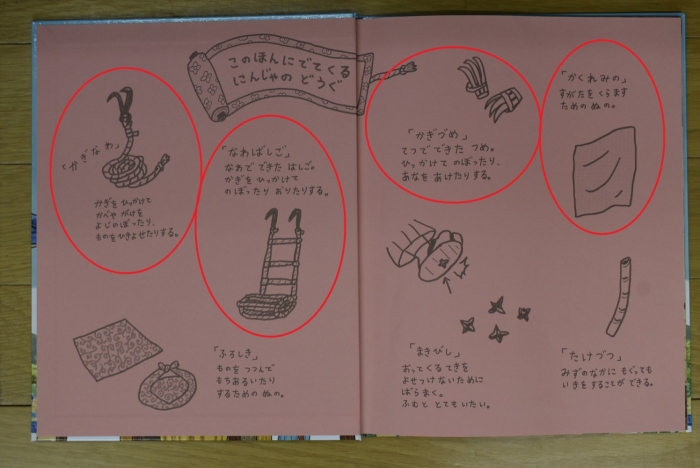 このほんにでてくる
にんじゃの どうぐ
「かぎなわ」
かぎを ひっかけて
かべや がけを
よじのぼったり、
ものをひきよせたりする。
「なわばしご」
なわで できた はしご。
かぎを ひっかけて
のぼったり おりたりする。
「ふろしき」
ものを つつんで
もちあるいたり
するための ぬの。
「かぎづめ」
てつで できた つめ。
ひっかけて のぼったり、
あなを あけたりする。
「かくれみの」
すがたを くらます
ための ぬの。
「まきびし」
おってくる てきを
よせつけないために
ばらまく。
ふむと とてもいたい。
「たけづつ」
みずのなかに もぐっても
いきをすることが できる。